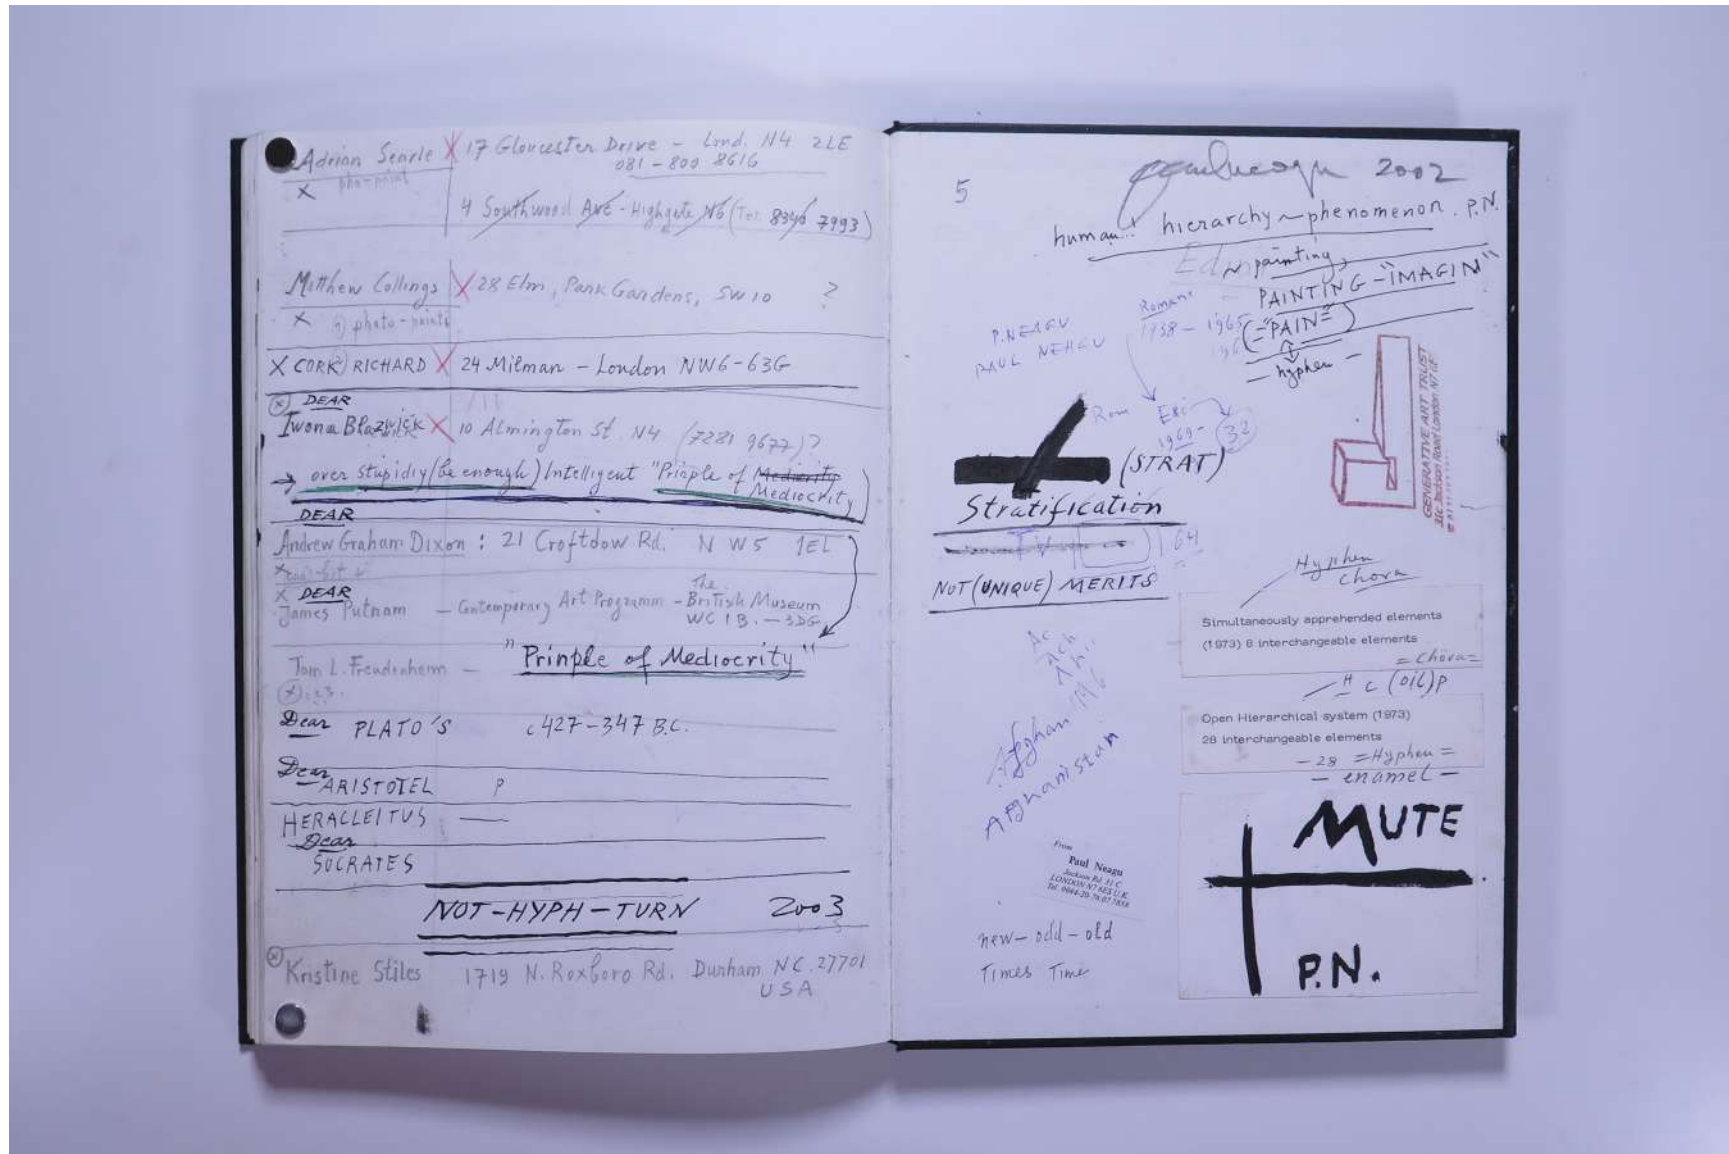 Adrian Searle X 17 Gloucester Drive - Lond. N4 2LE
081-800 8616
X
4 Southwood Ave - Highgate N6 (Tel. 8340 7993)
Matthew Collings X 28 Elm, Park Gardens, SW10 ?
X photo-paints
X CORK RICHARD X 24 Milman - London NW6-63G
DEAR
Iwona Blazwick X 10 Almington St. N4 (7281 9677)?
→ over stupidiy (be enough) Intelligent "Prinple of
Mediocrity
DEAR
Andrew Graham Dixon : 21 Croftdow Rd. NW5 1EL
X DEAR
James Putnam - Contemporary Art Programm - The British Museum
WC1B. - 3DG
Tom L. Freudenheim - "Prinple of Mediocrity"
Dear PLATO'S c 427-347 B.C.
Dear
ARISTOTEL P
HERACLEITUS —
Dear
SOCRATES
NOT-HYPH-TURN 2003
Kristine Stiles 1719 N. Roxboro Rd. Durham NC. 27701
USA
5
2002
human hierarchy~phenomenon. P.N.
painting,
PAINTING-"IMAGIN"
(-"PAIN=")
- hyphen -
P.NEAGU
PAUL NEAGU
1738 - 1965
Rom
1969-
32
(STRAT)
Stratification
164
NOT (UNIQUE) MERITS
GENERATIVE ART TRUST
31c Jackson Road London N7 6E
Hyphen
chora
Simultaneously apprehended elements
(1973) 8 interchangeable elements
= Chora =
H c (oil)p
Open Hierarchical system (1973)
28 interchangeable elements
- 28 = Hyphen =
- enamel -
Ac
Ach
Afghan
Afghanistan
From
Paul Neagu
Jackson Rd. 31 C
LONDON N7 6ES U.K.
Tel. 0044-20-76 07 7858
new-odd-old
Times Time
MUTE
P.N.